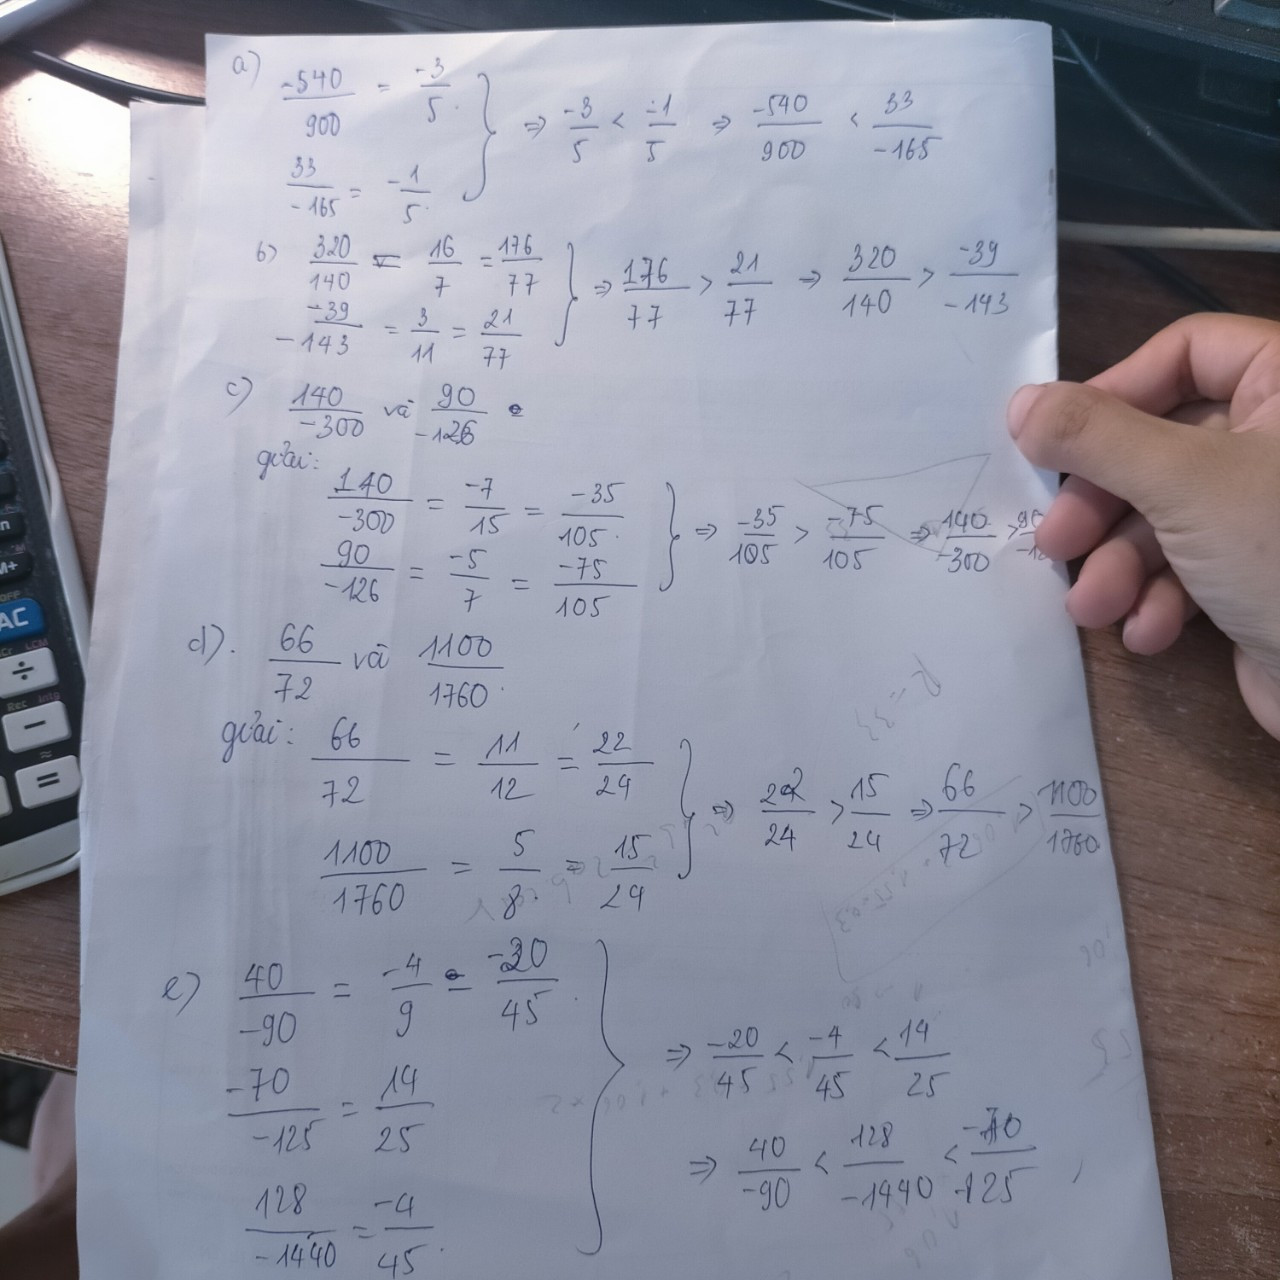 a) -540/900 = -3/5
33/-165 = -1/5
⇒ -3/5 < -1/5 ⇒ -540/900 < 33/-165
b) 320/140 = 16/7 = 176/77
-39/-143 = 3/11 = 21/77
⇒ 176/77 > 21/77 ⇒ 320/140 > -39/-143
c) 140/-300 và 90/-126
giải:
140/-300 = -7/15 = -35/105
90/-126 = -5/7 = -75/105
⇒ -35/105 > -75/105 ⇒ 140/-300 >
d). 66/72 và 1100/1760
giải: 66/72 = 11/12 = 22/24
1100/1760 = 5/8 = 15/24
⇒ 22/24 > 15/24 ⇒ 66/72 > 1100/1760
e) 40/-90 = -4/9 = -20/45
-70/-125 = 14/25
128/-1440 = -4/45
⇒ -20/45 < -4/45 < 14/25
⇒ 40/-90 < 128/-1440 < -70/-125
AC
÷
−
=
M+